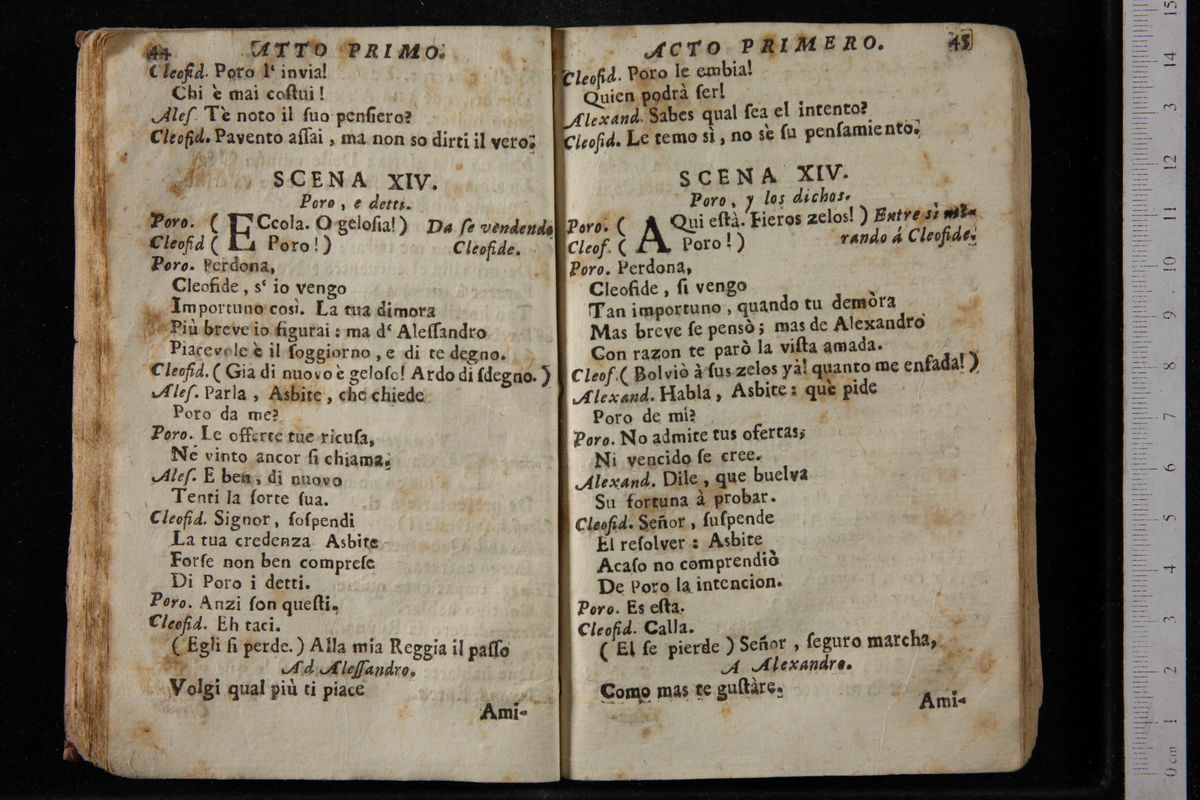 44 ATTO PRIMO.
Cleofid. Poro l' invia!
Chi è mai coſtui!
Aleſ. T'è noto il ſuo penſiero?
Cleofid. Pavento aſſai, ma non so dirti il vero.
SCENA XIV.
Poro, e detti.
Poro. ( ECcola. O geloſia!) Da ſe vendendo
Cleofid ( Poro!) Cleofide.
Poro. Perdona,
Cleofide, s' io vengo
Importuno così. La tua dimora
Più breve io figurai: ma d' Aleſſandro
Piacevole è il ſoggiorno, e di te degno.
Cleofid. (Già di nuovo è geloſo! Ardo di ſdegno.)
Aleſ. Parla, Asbite, che chiede
Poro da me?
Poro. Le offerte tue ricuſa,
Nè vinto ancor ſi chiama.
Aleſ. E ben, di nuovo
Tenti la ſorte ſua.
Cleofid. Signor, ſoſpendi
La tua credenza Asbite
Forſe non ben compreſe
Di Poro i detti.
Poro. Anzi ſon queſti.
Cleofid. Eh taci.
(Egli ſi perde.) Alla mia Reggia il paſſo
Ad Aleſſandro.
Volgi qual più ti piace
Ami-
ACTO PRIMERO. 45
Cleofid. Poro le embia!
Quien podrà ſer!
Alexand. Sabes qual ſea el intento?
Cleofid. Le temo sì, no sè ſu penſamiento.
SCENA XIV.
Poro, y los dichos.
Poro. ( AQui eſtà. Fieros zelos!) Entre sì mi-
Cleof. ( Poro!) rando á Cleofide.
Poro. Perdona,
Cleofide, ſi vengo
Tan importuno, quando tu demòra
Mas breve ſe pensò; mas de Alexandro
Con razon te parò la viſta amada.
Cleof. (Bolviò à ſus zelos yà! quanto me enfada!)
Alexand. Habla, Asbite: què pide
Poro de mi?
Poro. No admite tus ofertas,
Ni vencido ſe cree.
Alexand. Dile, que buelva
Su fortuna à probar.
Cleofid. Señor, ſuſpende
El reſolver: Asbite
Acaſo no comprendiò
De Poro la intencion.
Poro. Es eſta.
Cleofid. Calla.
(El ſe pierde) Señor, ſeguro marcha,
A Alexandro.
Como mas te guſtàre.
Ami-
0 cm 1 2 3 4 5 6 7 8 9 10 11 12 13 14 15